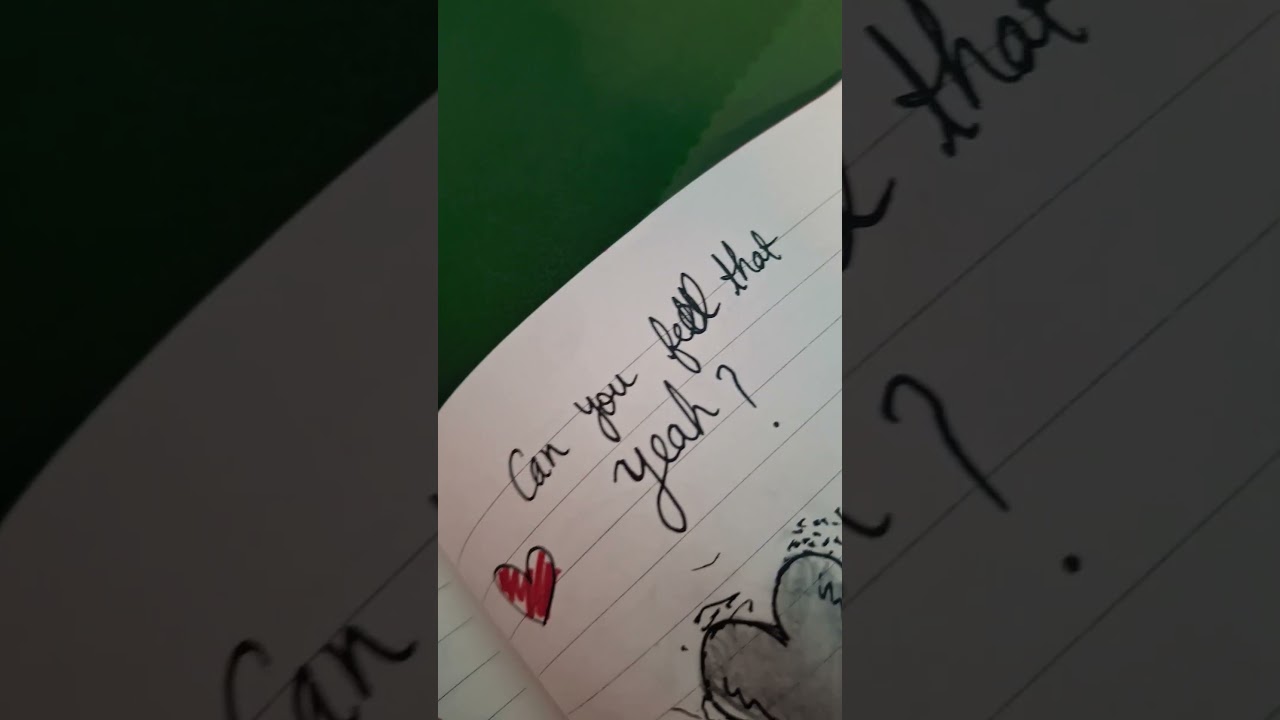 Can you feel that
yeah?